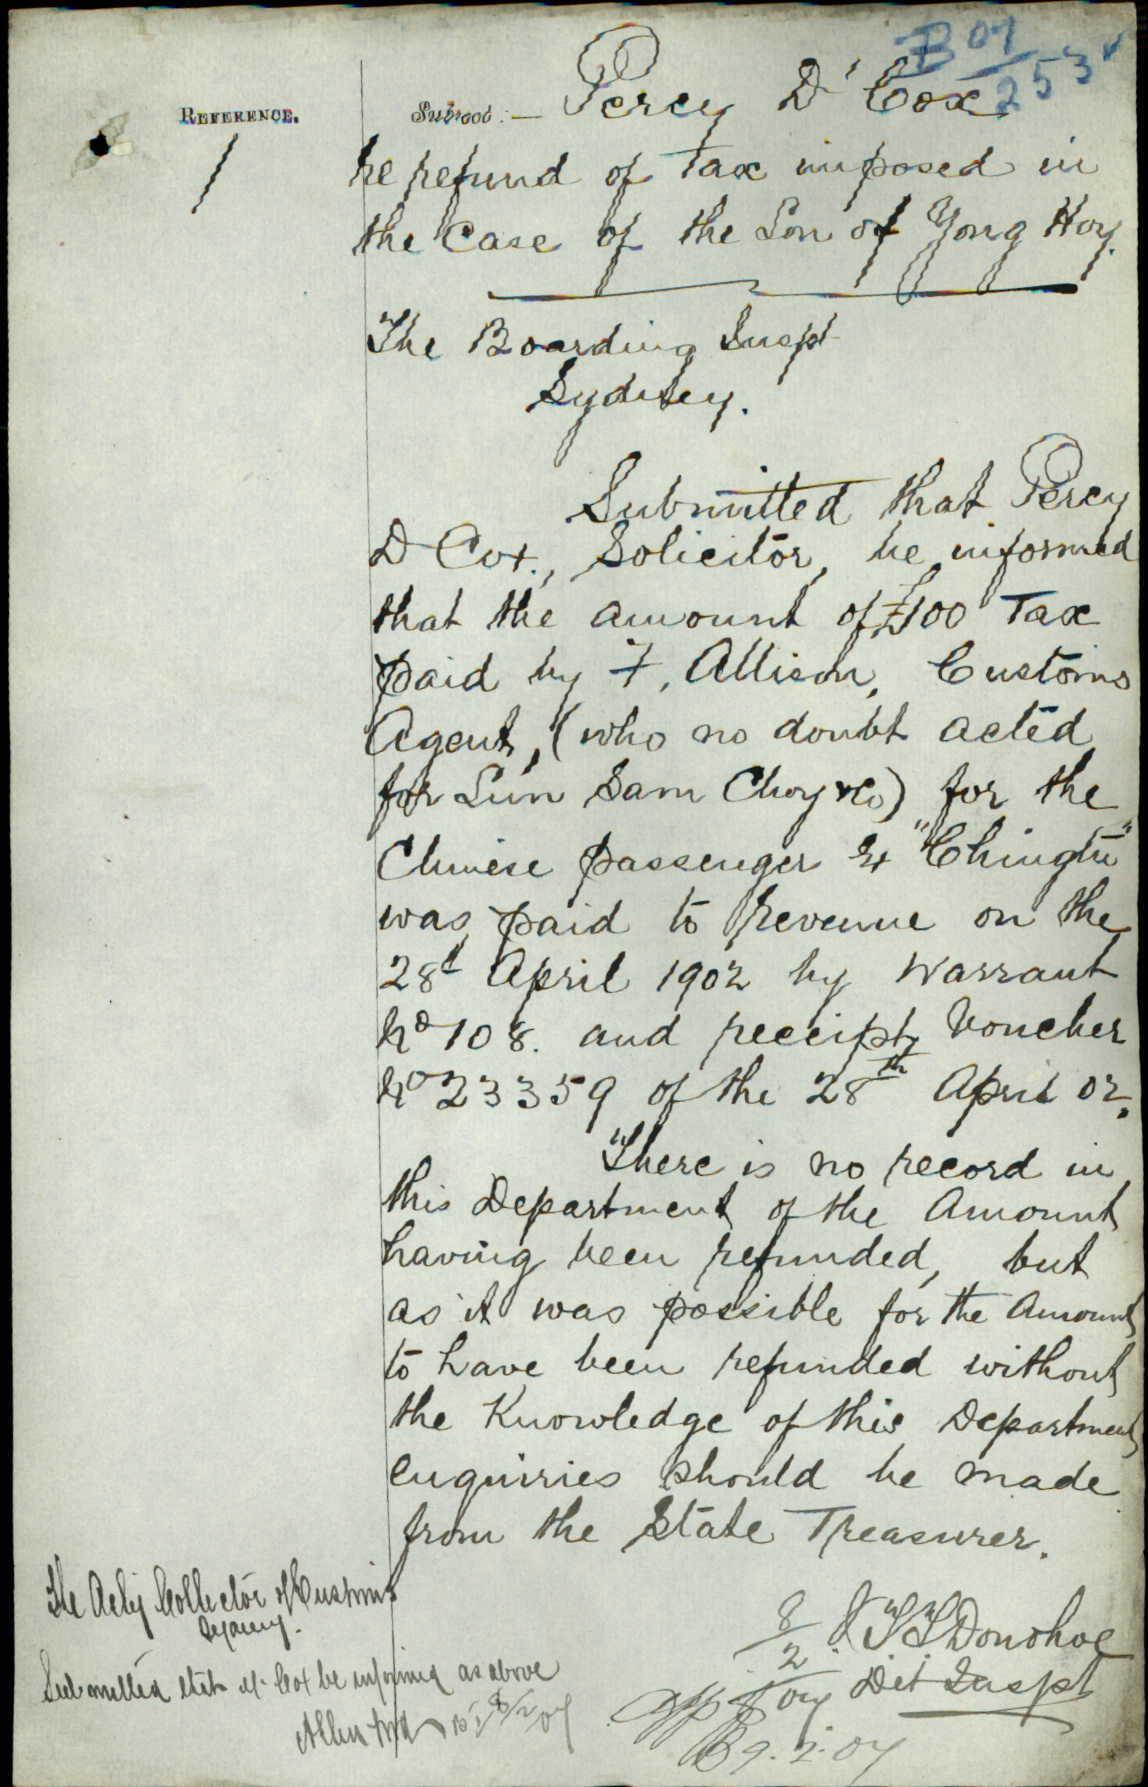 B 07
2534
REFERENCE.
Subject:— Percy D' Cox
1
re refund of Tax imposed in
the Case of the Son of Yong Hoy.
The Boarding Inspt
Sydney.
Submitted that Percy
D Cox., Solicitor, be informed
that the amount of £100 Tax
paid by F. Allison, Customs
Agent, (who no doubt acted
for Sun Sam Choy & Co) for the
Chinese passenger ex "Chingtu"
was paid to Revenue on the
28th April 1902 by Warrant
No 108. and receipt Voucher
No 23359 of the 28th April 02.
There is no record in
this Department of the Amount
having been refunded, but
as it was possible for the Amount
to have been refunded without
the Knowledge of this Department
enquiries should be made
from the State Treasurer.
J T T Donohoe
8/2/07 Det Inspt
The Actg Collector of Customs
Sydney.
Submitted that Mr Cox be informed as above
8/2/07
App
9.2.07